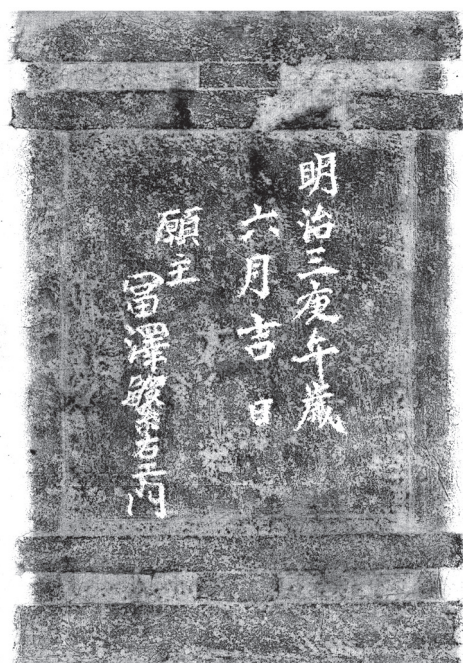 明治三庚午歳
六月吉日
願主
冨澤繁右エ門